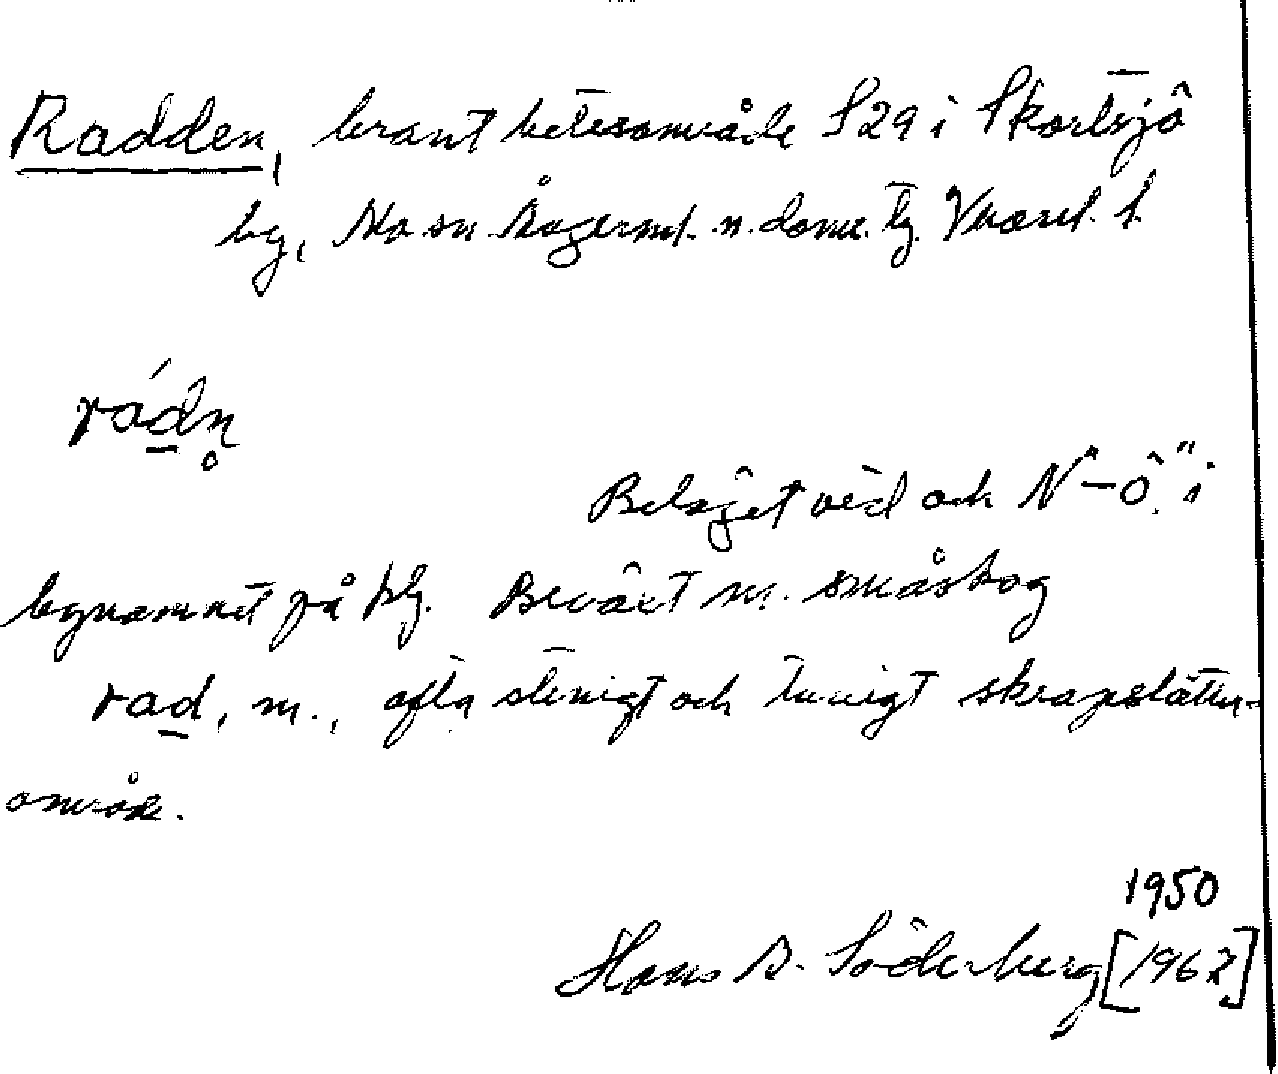 Radden, brant betesområde S29 i Skortsjö
by, Mo sn Ångerml. n. doms. tg. Vnorrl. l.
rádn̥
Beläget vid och N "–ö." i
bynamnet på blg. Beväxt m. småskog
rad, m., ofta stenigt och tuvigt skrapslåtter-
område.
1950
Hans B. Söderberg [1962]